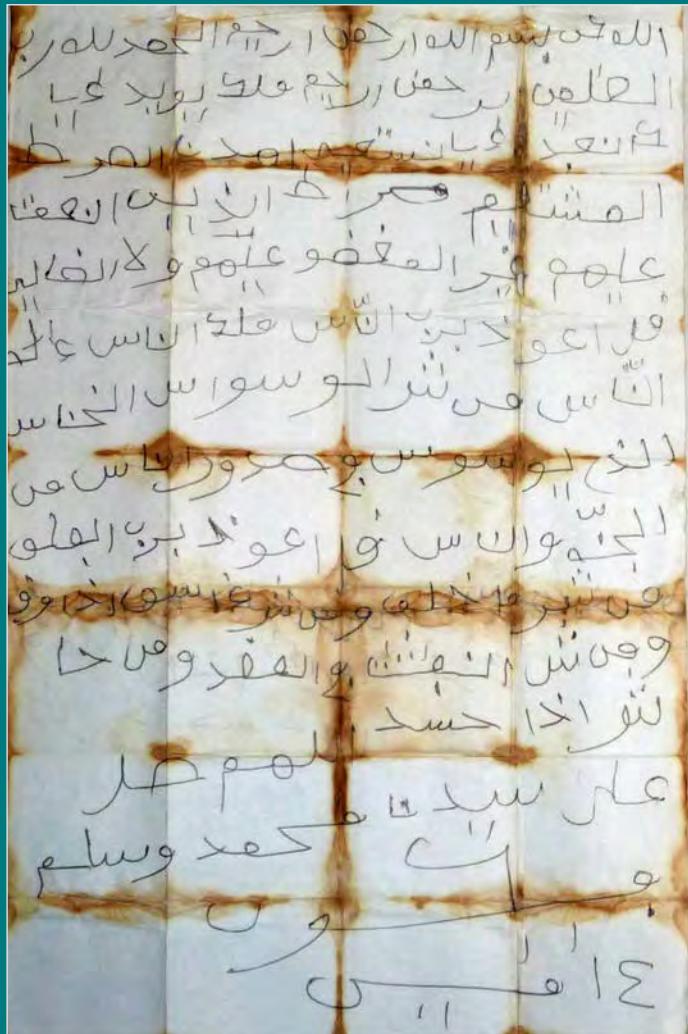 اللهمن بسم الله ارحمن ارحيم الحمد لله رب
العلمين ارحمن ارحيم ملك يويد ءيا
ك نعبد ءيا نستعين اهدنا الصرط
المشتقيم صراط الذين انعمت
عليهم غير المغضو عليهم ولا الضالين
قل اعوذ برب النّاس ملك الناس ءاله
النّاس من شر الوسواس الخناس
الذي يوسوس في صدور الناس من
الجنّه والناس اعوذ برب الفلق
من شر ما خلق ومن شر اذا وق
ومن شر النفثت في العقد ومن حا
شر اذا حسد اللهم صل
على سيدنا محمد وسلم